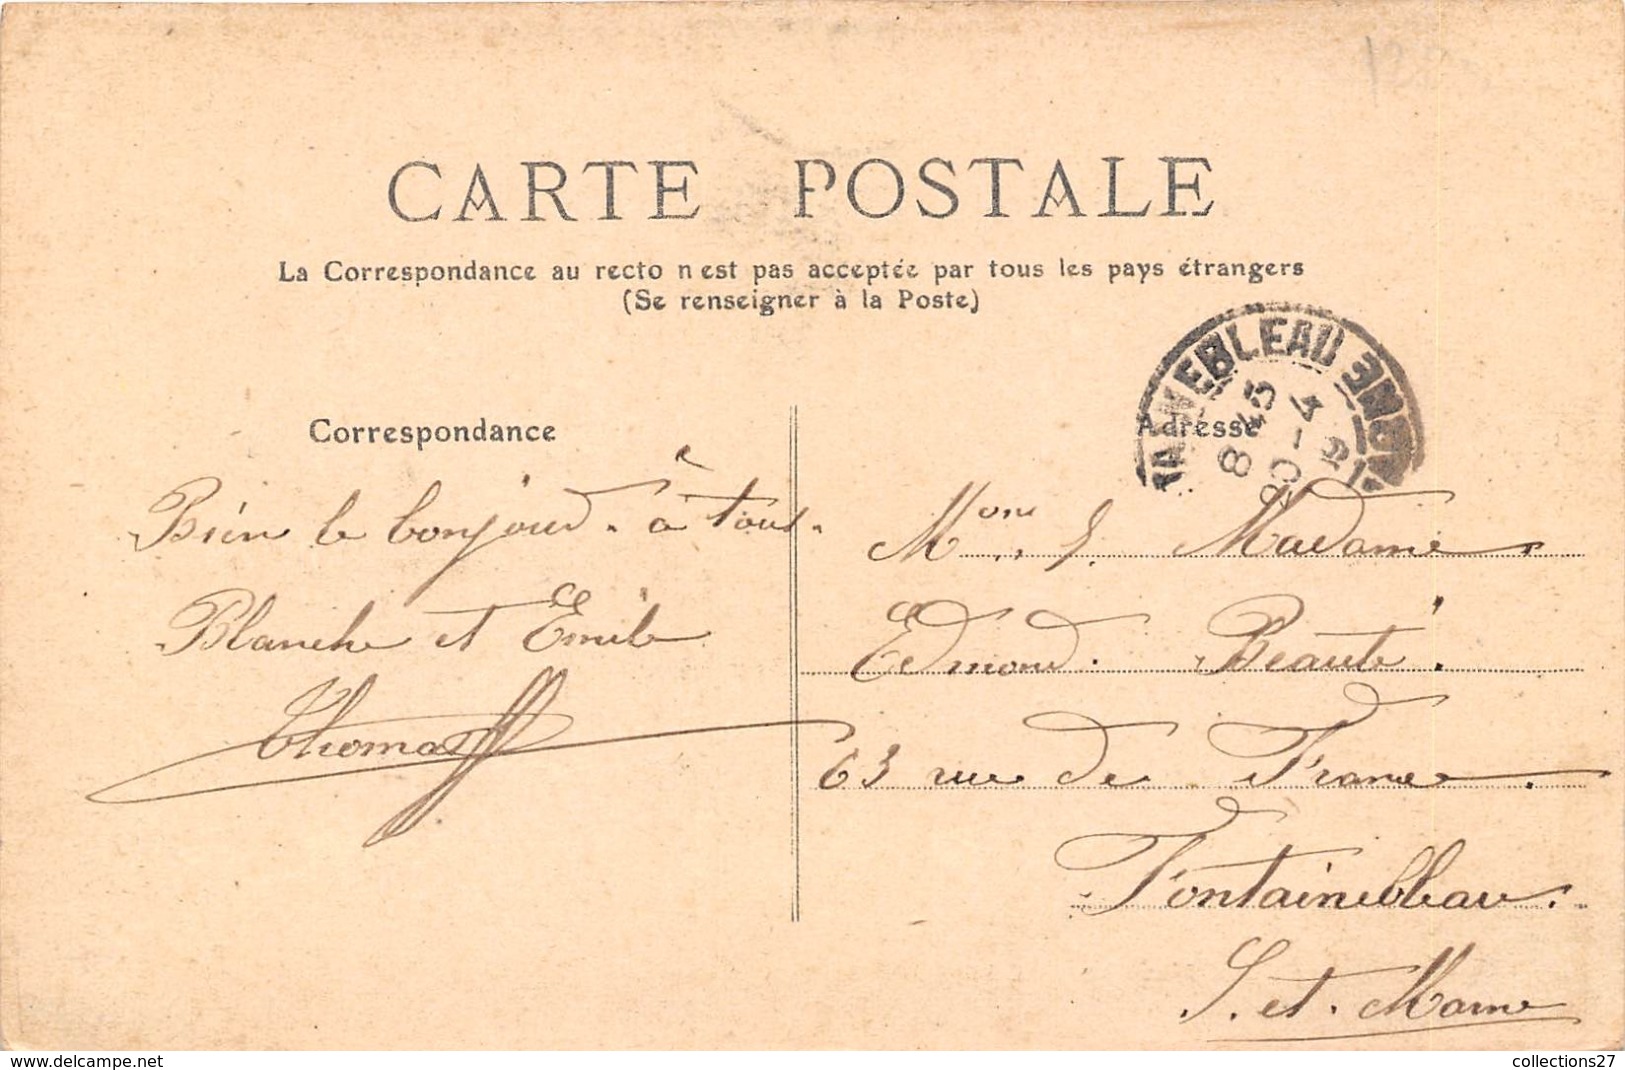 CARTE POSTALE
La Correspondance au recto n'est pas acceptée par tous les pays étrangers
(Se renseigner à la Poste)
Correspondance
Adresse
AINEBLEAU
8 45
20 - 4
Bien le bonjour à tous
Blanche et Emile
Thomas
Mon. et Madame
Edmond Beauté
63 rue de France
Fontainebleau
S. et Marne
www.delcampe.net
collections27